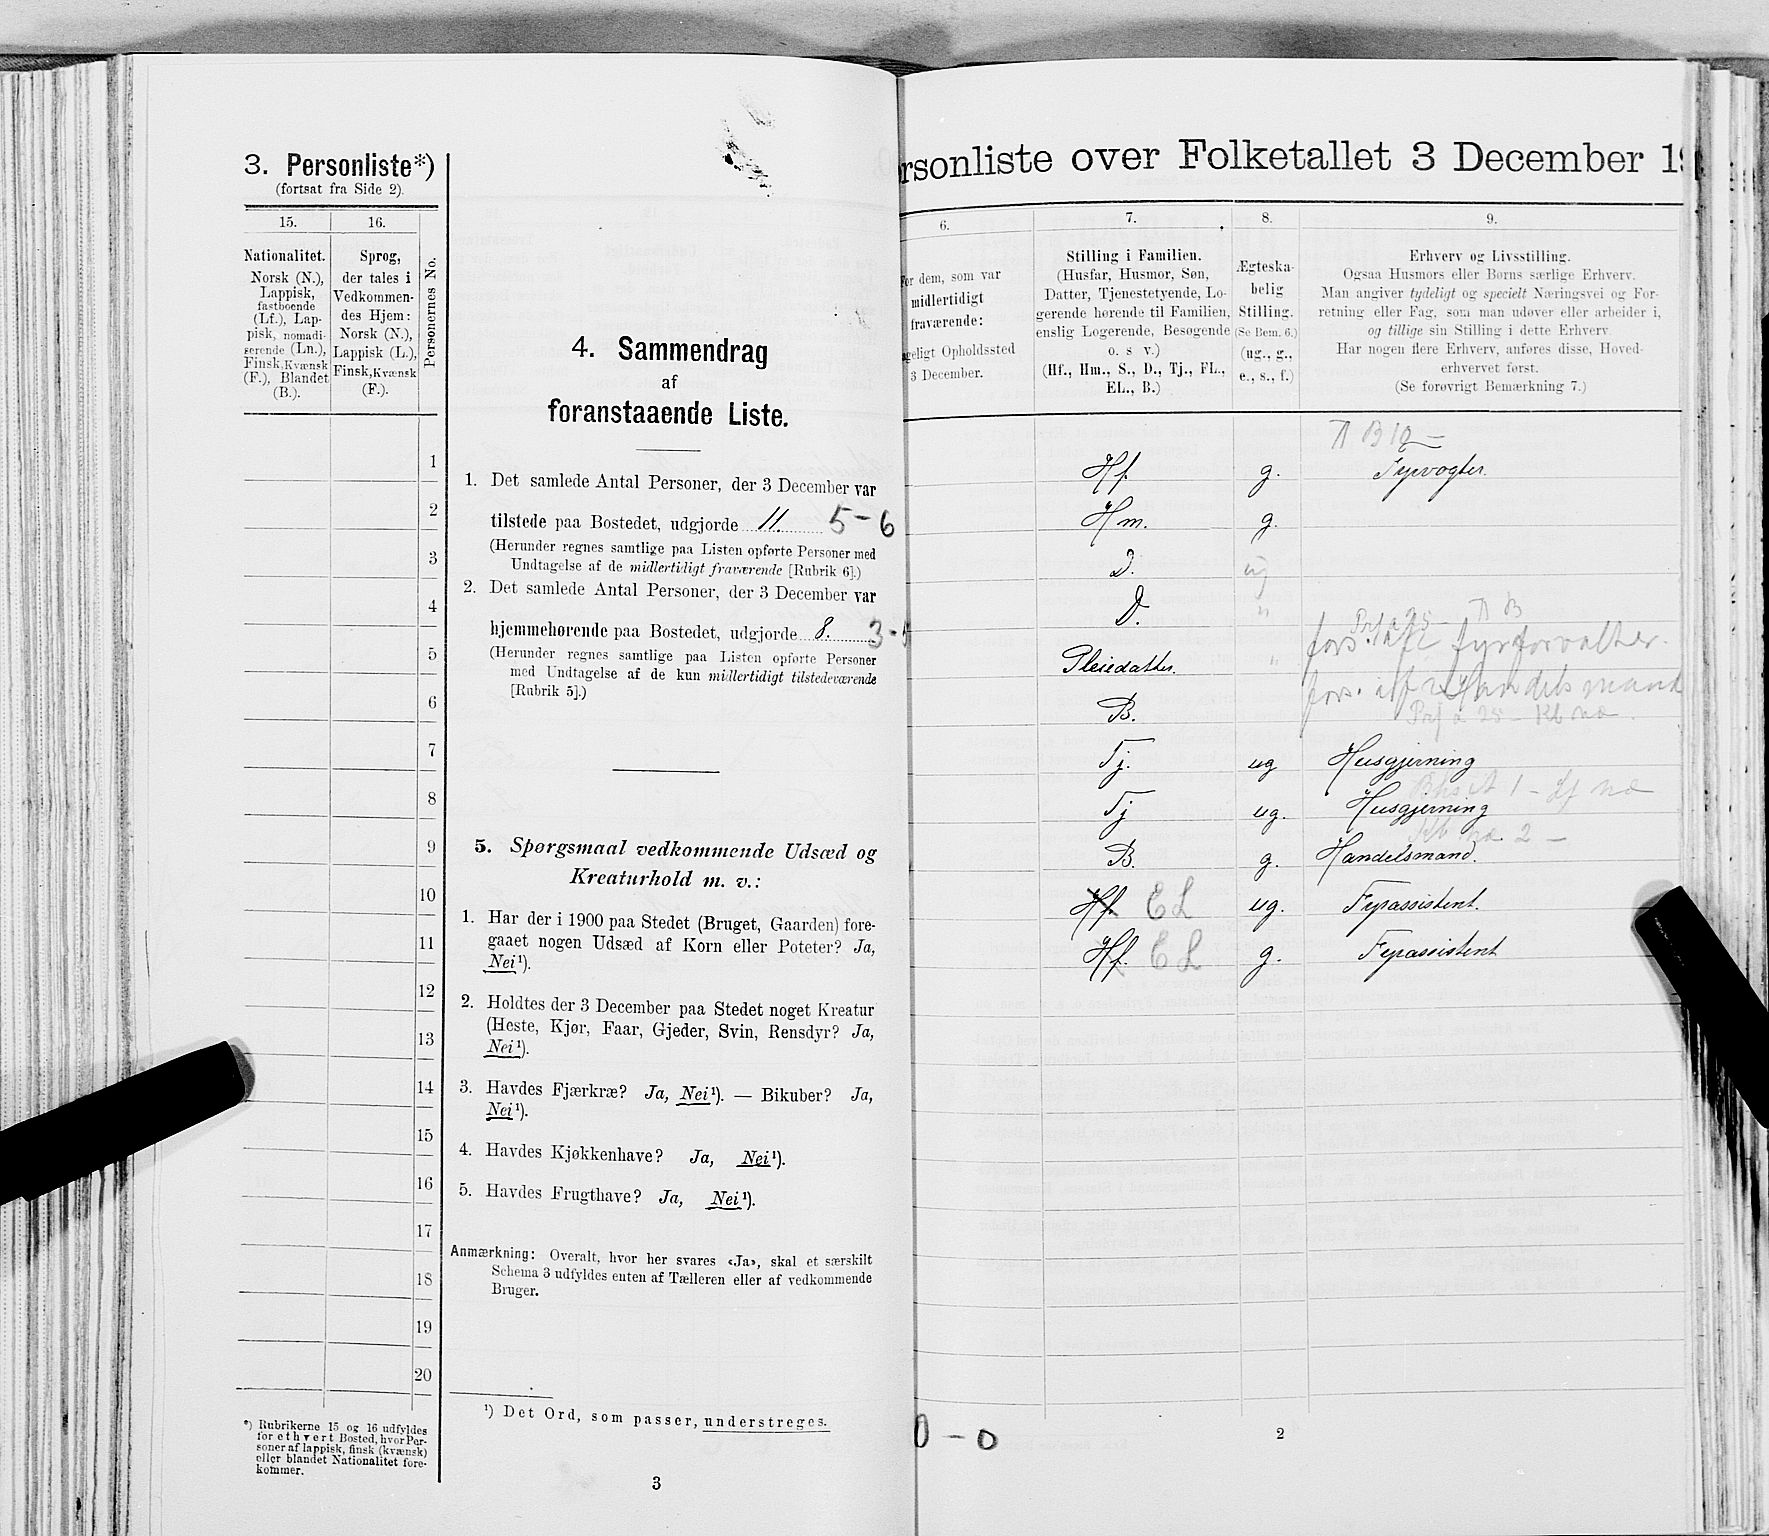 3. Personliste*)
(fortsat fra Side 2).
15.
16.
Personernes No.
Nationalitet.
Norsk (N.),
Lappisk,
fastboende
(Lf.), Lap-
pisk, nomadi-
serende (Ln.),
Finsk, Kvænsk
(F.), Blandet
(B.).
Sprog,
der tales i
Vedkommen-
des Hjem:
Norsk (N.),
Lappisk (L.),
Finsk, Kvænsk
(F.).
1
2
3
4
5
6
7
8
9
10
11
12
13
14
15
16
17
18
19
20
*) Rubrikerne 15 og 16 udfyldes
for ethvert Bosted, hvor Per-
soner af lappisk, finsk (kvænsk)
eller blandet Nationalitet fore-
kommer.
4. Sammendrag
af
foranstaaende Liste.
1. Det samlede Antal Personer, der 3 December var
tilstede paa Bostedet, udgjorde 11. 5-6
(Herunder regnes samtlige paa Listen opførte Personer med
Undtagelse af de midlertidigt fraværende [Rubrik 6].)
2. Det samlede Antal Personer, der 3 December var
hjemmehørende paa Bostedet, udgjorde 8. 3-
(Herunder regnes samtlige paa Listen opførte Personer
med Undtagelse af de kun midlertidigt tilstedeværende
[Rubrik 5].)
5. Spørgsmaal vedkommende Udsæd og
Kreaturhold m. v.:
1. Har der i 1900 paa Stedet (Bruget, Gaarden) fore-
gaaet nogen Udsæd af Korn eller Poteter? Ja,
Nei¹).
2. Holdtes der 3 December paa Stedet noget Kreatur
(Heste, Kjør, Faar, Gjeder, Svin, Rensdyr? Ja,
Nei¹).
3. Havdes Fjærkræ? Ja, Nei¹). — Bikuber? Ja,
Nei¹).
4. Havdes Kjøkkenhave? Ja, Nei¹).
5. Havdes Frugthave? Ja, Nei¹).
Anmærkning: Overalt, hvor her svares «Ja», skal et særskilt
Schema 3 udfyldes enten af Tælleren eller af vedkommende
Bruger.
¹) Det Ord, som passer, understreges.
3
rsonliste over Folketallet 3 December 19
6.
7.
8.
9.
For dem, som var
midlertidigt
fraværende:
geligt Opholdssted
3 December.
Stilling i Familien.
(Husfar, Husmor, Søn,
Datter, Tjenestetyende, Lo-
gerende hørende til Familien,
enslig Logerende, Besøgende
o. s v.)
(Hf., Hm., S., D., Tj., FL.,
EL., B.)
Ægteska-
belig
Stilling.
(Se Bem. 6.)
(ug., g.,
e., s., f.)
Erhverv og Livsstilling.
Ogsaa Husmors eller Børns særlige Erhverv.
Man angiver tydeligt og specielt Næringsvei og For-
retning eller Fag, som man udøver eller arbeider i,
og tillige sin Stilling i dette Erhverv.
Har nogen flere Erhverv, anføres disse, Hoved-
erhvervet først.
(Se forøvrigt Bemærkning 7.)
Hf. g. Fyrvogter.
Hm. g.
D. ug
D. "
fors. af fyrforvalter.
Pleiedatter. "
fors. af Handelsmand
B.
Tj. ug Husgjerning
Tj ug. Husgjerning
B. g. Handelsmand.
Hf. E L ug. Fyrassistent.
Hf. E L g. Fyrassistent
0 - 0
2